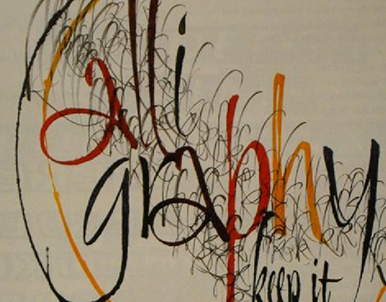 Calli
graphy
keep it